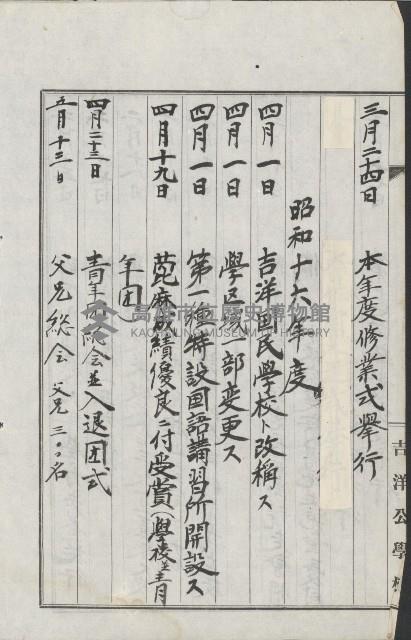 三月二十四日　本年度修業式挙行
昭和十六年度
四月一日　吉洋国民学校ト改稱ス
四月一日　學区域一部変更ス
四月一日　第一種特設国語講習所開設ス
四月十九日　萞麻成績優良ニ付受賞(學校並青
年団
四月二十三日　青年団総会並入退団式
五月十三日　父兄総会　父兄三〇〇名
吉洋公學校
高雄市立歷史博物館
KAOHSIUNG MUSEUM OF HISTORY